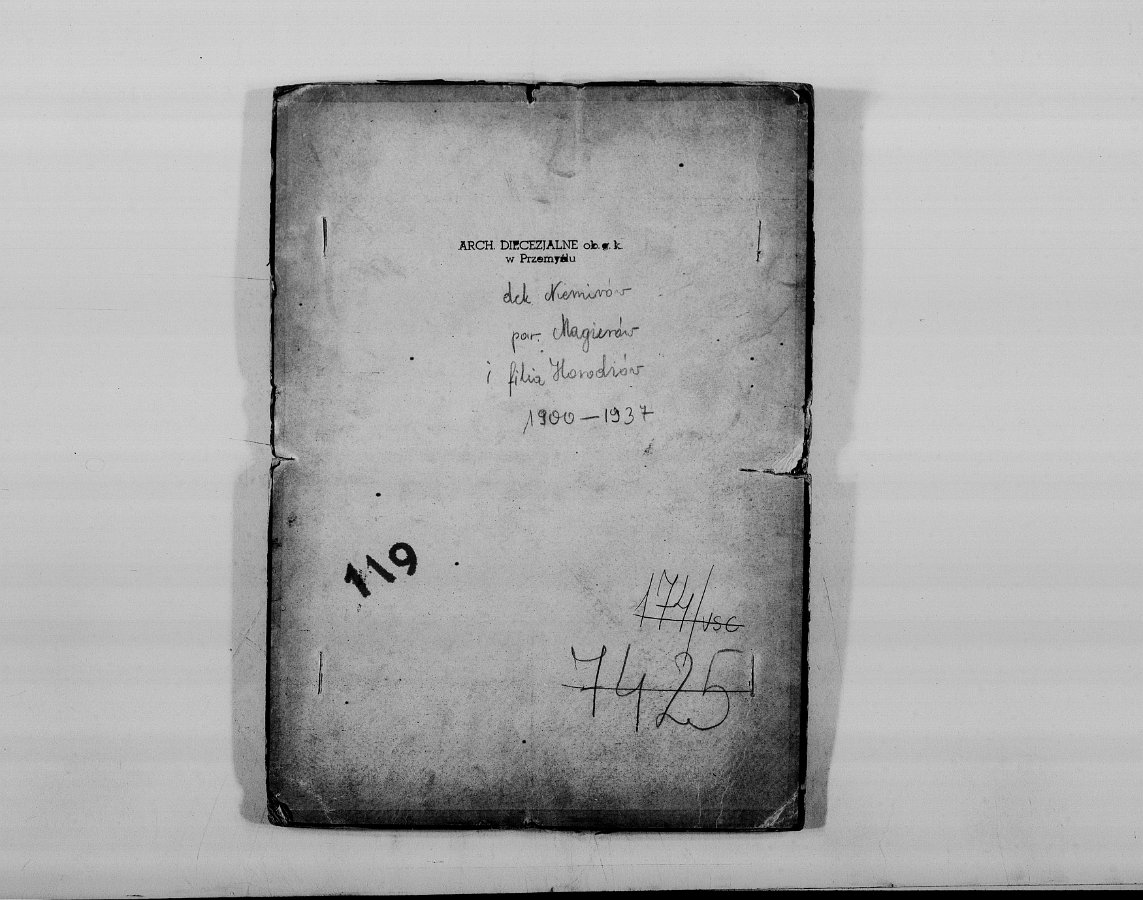 ARCH. DIECEZJALNE ob. g. k.
w Przemyślu
dek Niemirów
par. Magierów
i filia Horodzów
1900–1937
119
174/VSC
7425